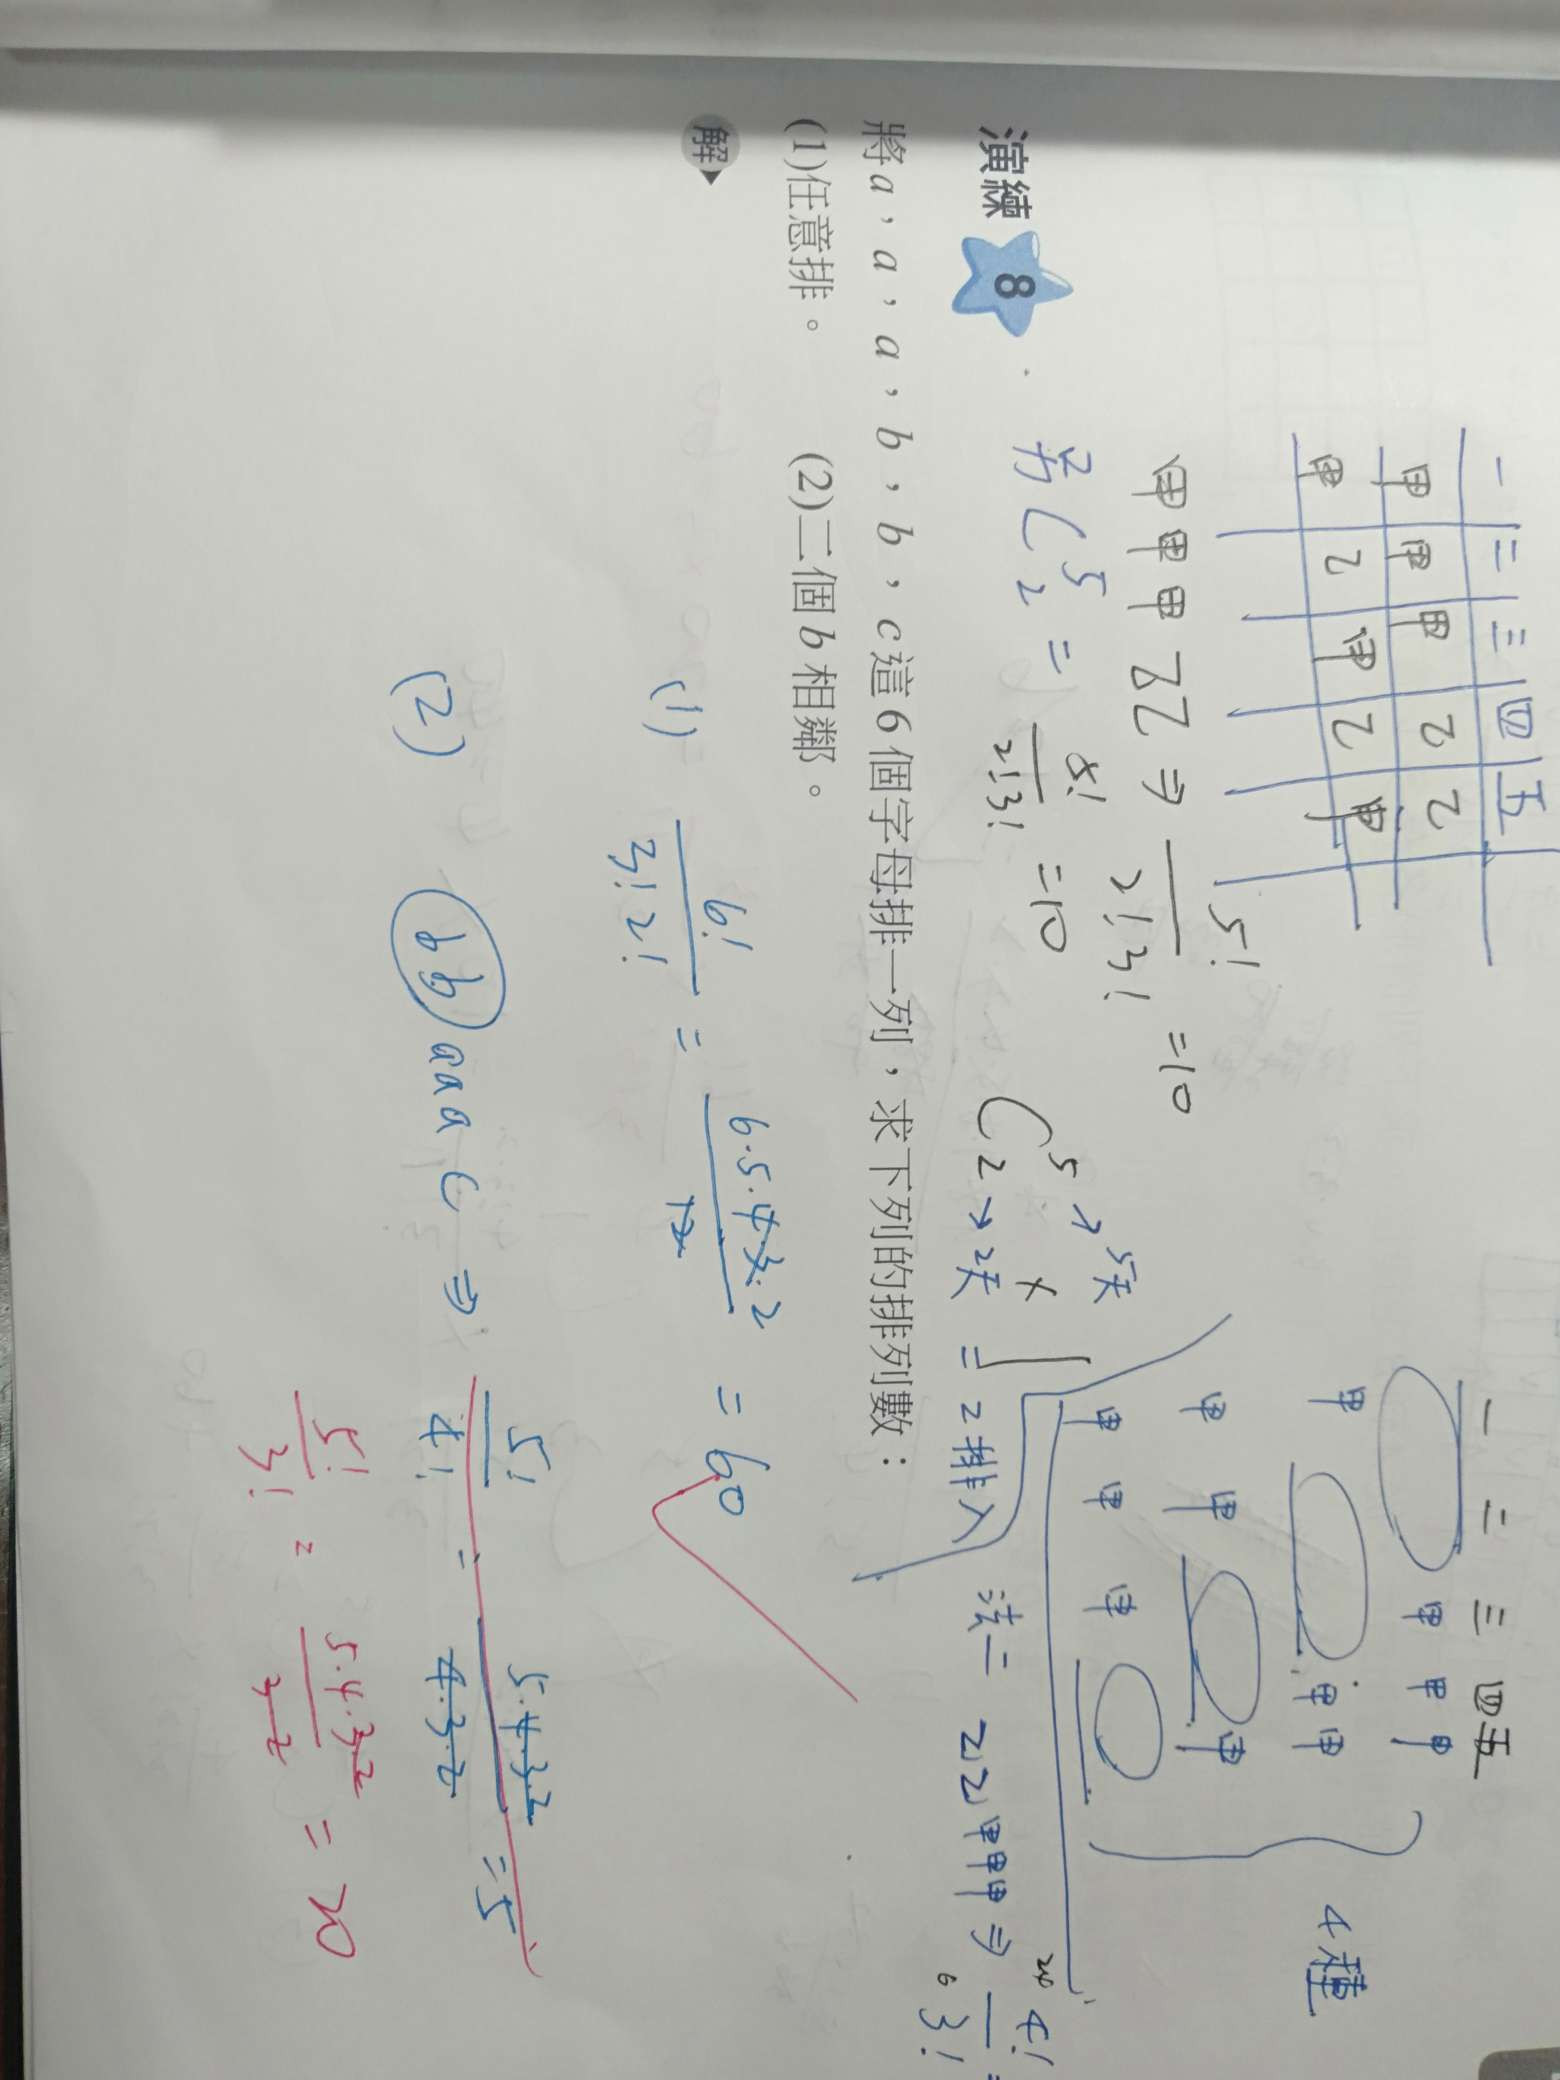 一 二 三 四 五
甲 甲 甲 乙 乙
甲 乙 甲 乙 甲
甲甲甲乙乙 ⇒ 5!/2!3! =10
另 C⁵₂ = 5!/2!3! =10
C⁵₂ → 5天
→ 2天 × 1 = 2排入
一 二 三 四 五
甲 甲 甲
甲 甲 甲
甲 甲 甲
甲 甲 甲
4種
法二 乙乙甲甲甲 ⇒ 4!/3! =
24
6
演練 8
將a,a,a,b,b,c這6個字母排一列,求下列的排列數:
(1)任意排。 (2)二個b相鄰。
解
(1) 6!/3!2! = 6·5·4·3·2/12 = 60
(2) bb aaa c ⇒ 5!/4! = 5·4·3·2/4·3·2 = 5
5!/3! = 5·4·3·2/3·2 = 20